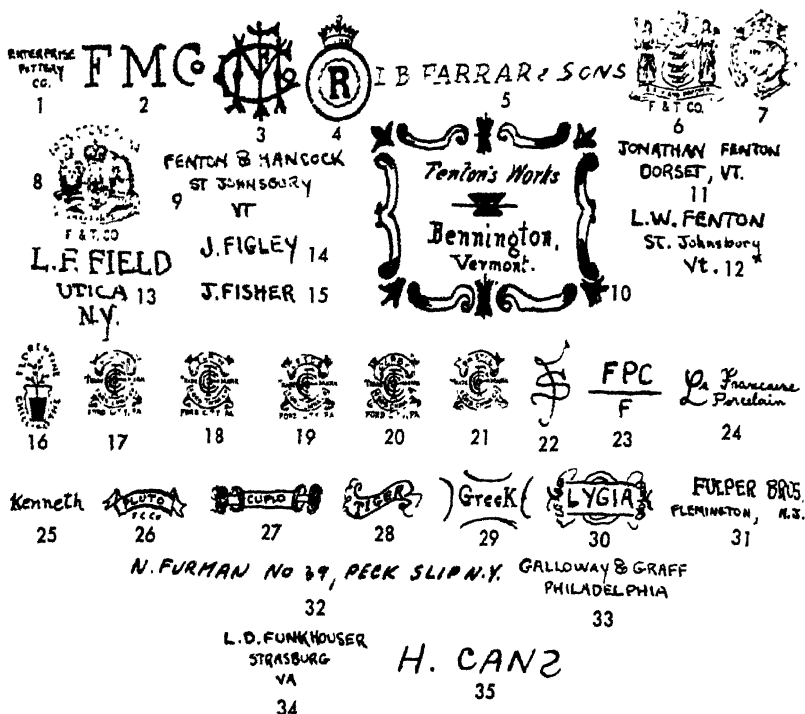 ENTERPRISE
POTTERY
CO.
1
F M Co
2
3
R
4
I B FARRAR & SONS
5
F & T CO.
6
7
8
F & T. CO
FENTON & HANCOCK
ST JOHNSBURY
VT
9
Fenton's Works
Bennington,
Vermont.
10
JONATHAN FENTON
DORSET, VT.
11
L.W. FENTON
St. Johnsbury
Vt. 12
L.F. FIELD
UTICA 13
N.Y.
J. FIGLEY 14
J. FISHER 15
16
17
18
19
20
21
22
FPC
F
23
La Francaire
Porcelain
24
Kenneth
25
PLUTO
F.C.Co
26
CUPID
27
TIGER
28
GreeK
29
LYGIA
30
FULPER BROS.
FLEMINGTON, N.J.
31
N. FURMAN No 39, PECK SLIP N.Y.
32
GALLOWAY & GRAFF
PHILADELPHIA
33
L.D. FUNKHOUSER
STRASBURG
VA
34
H. CANS
35